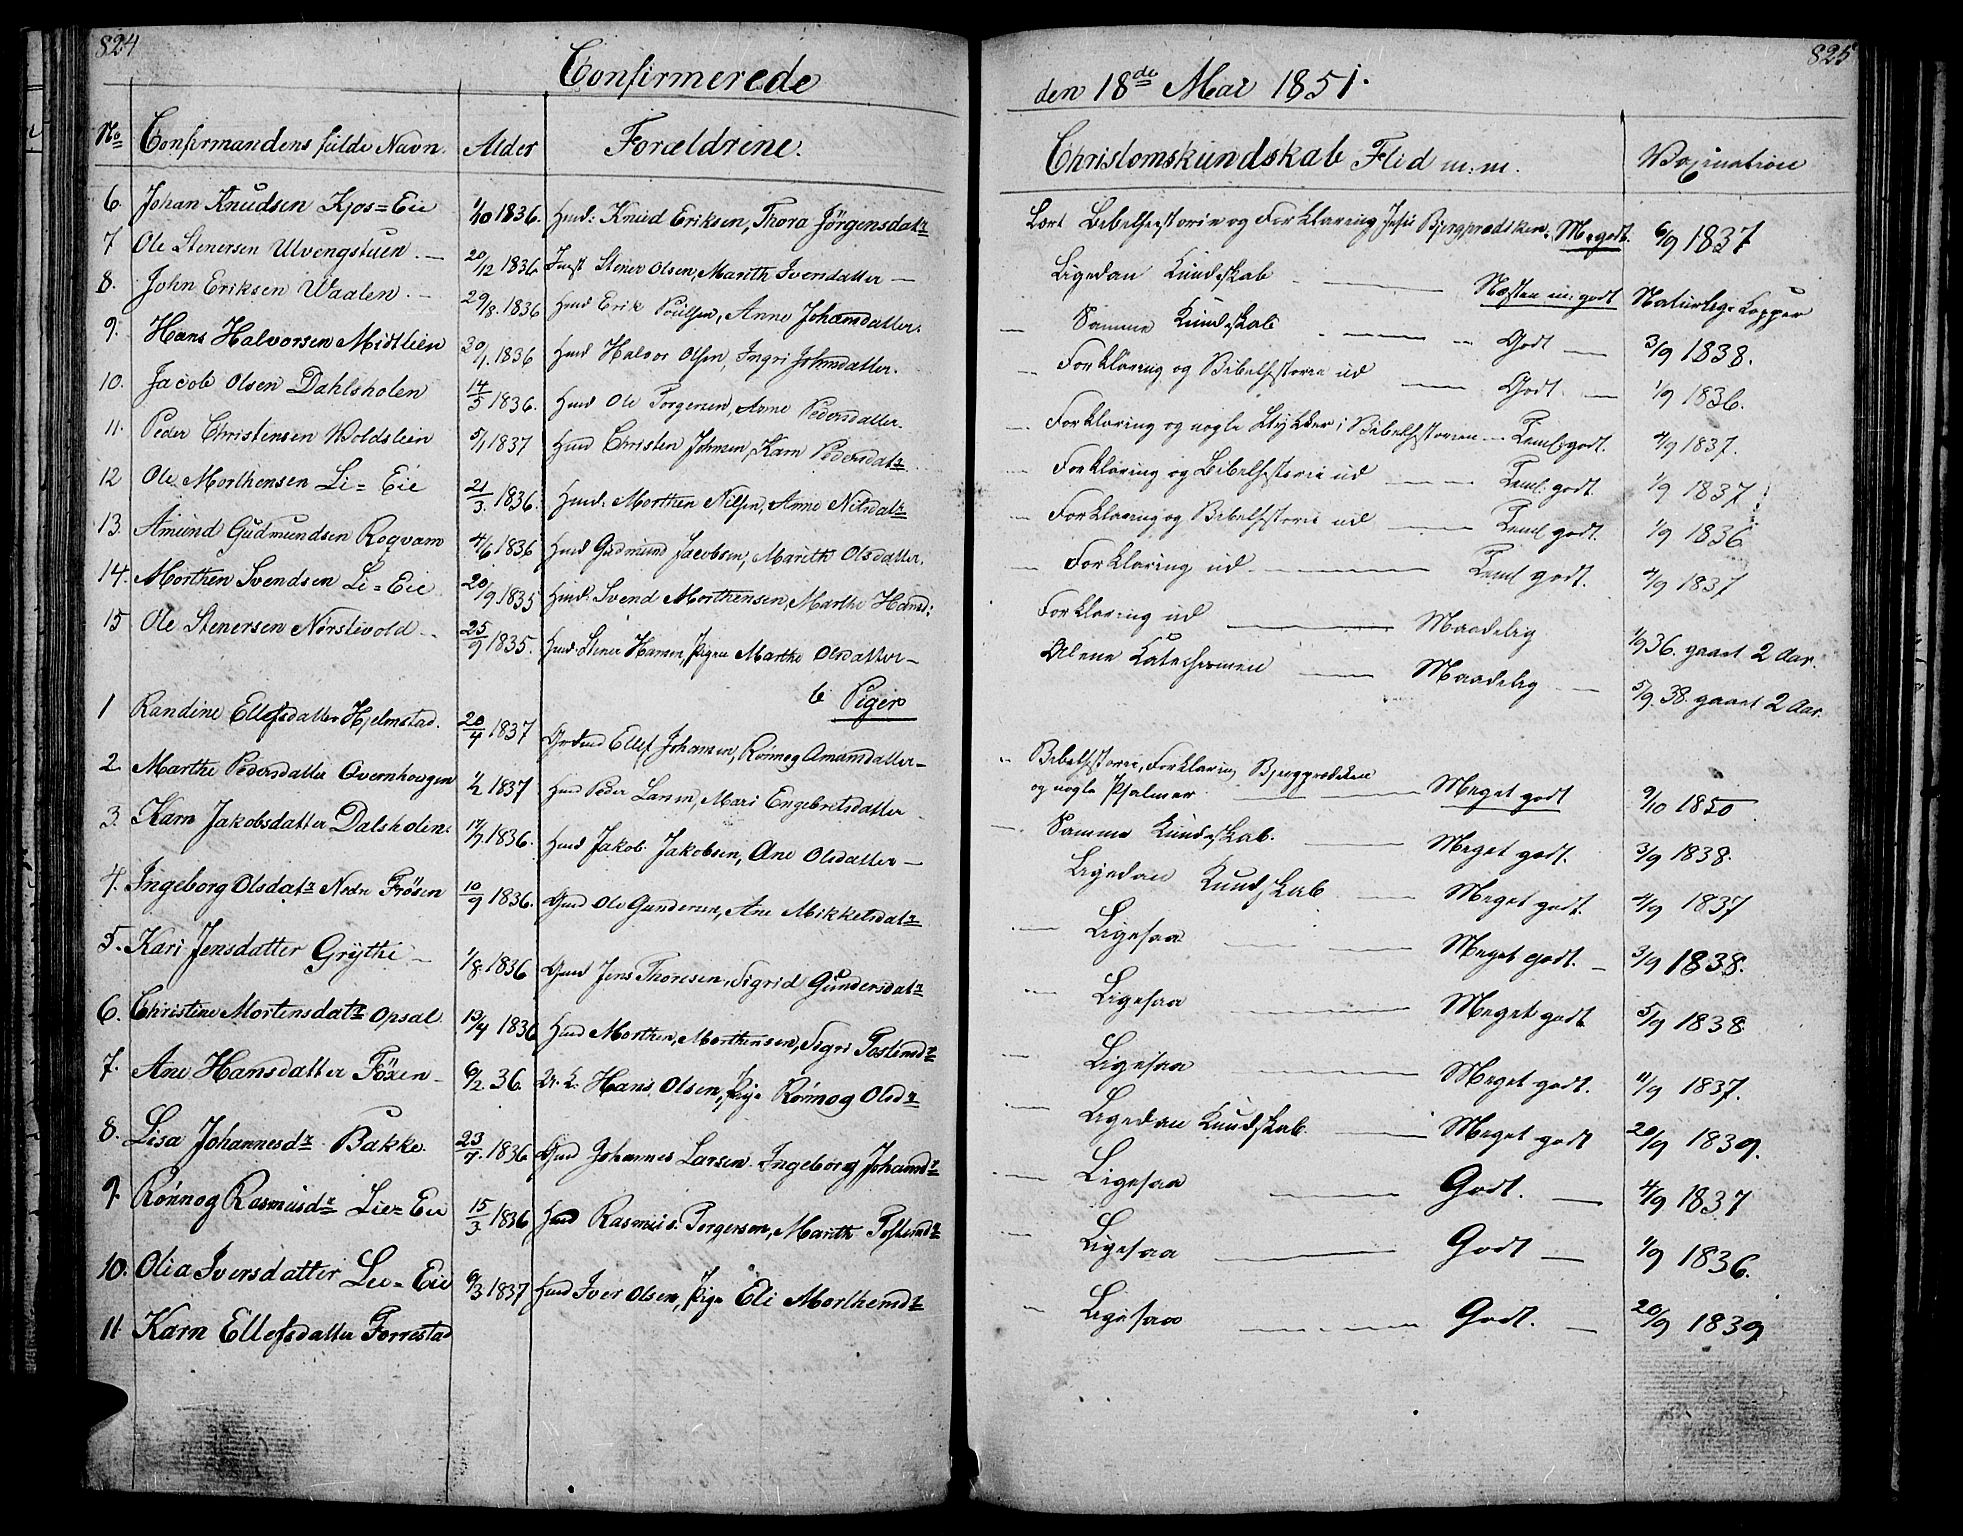 824
Confirmerede
No Confirmandens fulde Navn. Alder Forældrene.
6. Johan Knudsen Kjos=Eie 1/10 1836. Huusd: Knud Eriksen, Thora Jörgensdatr
7 Ole Stenersen Ulvengstuen. — 20/12 1836 Inst Stener Olsen, Marith Iversdatter —
8. John Eriksen Waalen. — 29/8. 1836 Huusd Erik Poulsen, Anne Johansdatter.
9. Hans Halvorsen Midtlien 30/1. 1836 Huusd Halvor Olsen, Ingri Johnsdatter.
10. Jacob Olsen Dahlsholen 14/5 1836. Huusd Ole Torgersen, Anne Pedersdatter.
11. Peder Christensen Woldslien 5/1 1837 Huusd Christen Johnsen, Karn Pedersdatr
12 Ole Morthensen Li=Eie 21/3. 1836. Huusd: Morthen Nilsen, Anne Nilsdatr
13. Amund Gudmundsen Roqvam 4/6 1836 Huusd Gudmund Jacobsen, Marith Olsdatter.
14. Morthen Svendsen Li=Eie 20/9 1835 Huusd: Svend Morthensen, Marthe Hansd:
15 Ole Stenersen Nörstevold — 25/9 1835. Huusd: Stener Hansen, Pigen Marthe Olsdatter —
b Piger
1 Randine Ellefsdatter Hjelmstad. 20/4 1837 Grdmd Ellef Johansen, Rönnog Amundsdatter —
2. Marthe Pedersdatter Qvernhougen 1/2 1837 Huusd Peder Larsen, Mari Engebretsdatter
3. Karn Jakobsdatter Dalsholen. 17/7. 1836. Huusd Jakob Jakobsen, Ane Olsdatter —
4. Ingeborg Olsdatr Nedre Fröisen 10/9 1836. Gmd Ole Gundersen, Ane Mikkelsdatr
5. Kari Jensdatter Grÿthe — 1/8. 1836 Gmd Jens Thoresen, Sigrid Gundersdatr
6. Christine Mortensdatr Opsal 13/4 1836 Huusd Morthen, Morthensen, Sigri Postensdr
7. Ane Hansdatter Föxen — 6/2 36. U. K. Hans Olsen, Pige Rönnog Olsdr
8. Lisa Johannesdr Bakke. 23/7. 1836 Gmd Johannes Larsen. Ingeborg Johansdr
9. Rönnog Rasmusdr Lie=Eie 15/3 1836 Huusd Rasmus Torgersen, Marith Postensdr
10. Olia Iversdatter Lie=Eie 6/3 1837 Huusd Iver Olsen, Pige Eli Morthensdr
11 Karn Ellefsdatter Forrestad
825
den 18de Mai 1851.
Christomskundskab Flid m:m. Vaxination
Lært Bibelhistorie og Forklaring, Jesu Bjergprædiken. M. godt. 6/9 1837
Ligedan Kundskab — Næsten m: godt Naturlige Kopper
— Samme Kundskab — Godt — 3/9 1838.
— Forklaring og Bibelhistorie ud — Godt. — 1/9 1836.
— Forklaring og nogle Stykker i Bibelhistorien — Teml: godt. 4/9 1837.
— Forklaring og Bibelhistorie ud — Teml: godt. 1/9 1837
— Forklaring og Bibelhistorie ud — Teml godt. 1/9 1836
— Forklaring ud — Teml godt. 4/9 1837
Forklaring ud — Maadelig 1/9 36. gaaet 2 Aar.
Alene Katechismen — Maadelig — 5/9. 38. gaaet 2 Aar.
Bibelhistorie, Forklaring Bjergprædiken
og nogle Psalmer — Meget godt 9/10 1850
— Samme Kundskab. — Meget godt. 3/9 1838.
Ligedan Kundskab — Meget godt. 4/9 1837
— Ligesaa — Meget godt. — 3/9 1838.
— Ligesaa — Meget godt 5/9 1838
— Ligesaa — Meget godt. 11/9 1837.
— Ligedan Kundskab. — Meget godt 20/9 1839.
— Ligesaa — Godt. — 4/9 1837
— Ligesaa — Godt — 1/9 1836.
— Ligesaa — Godt. — 20/9 1839